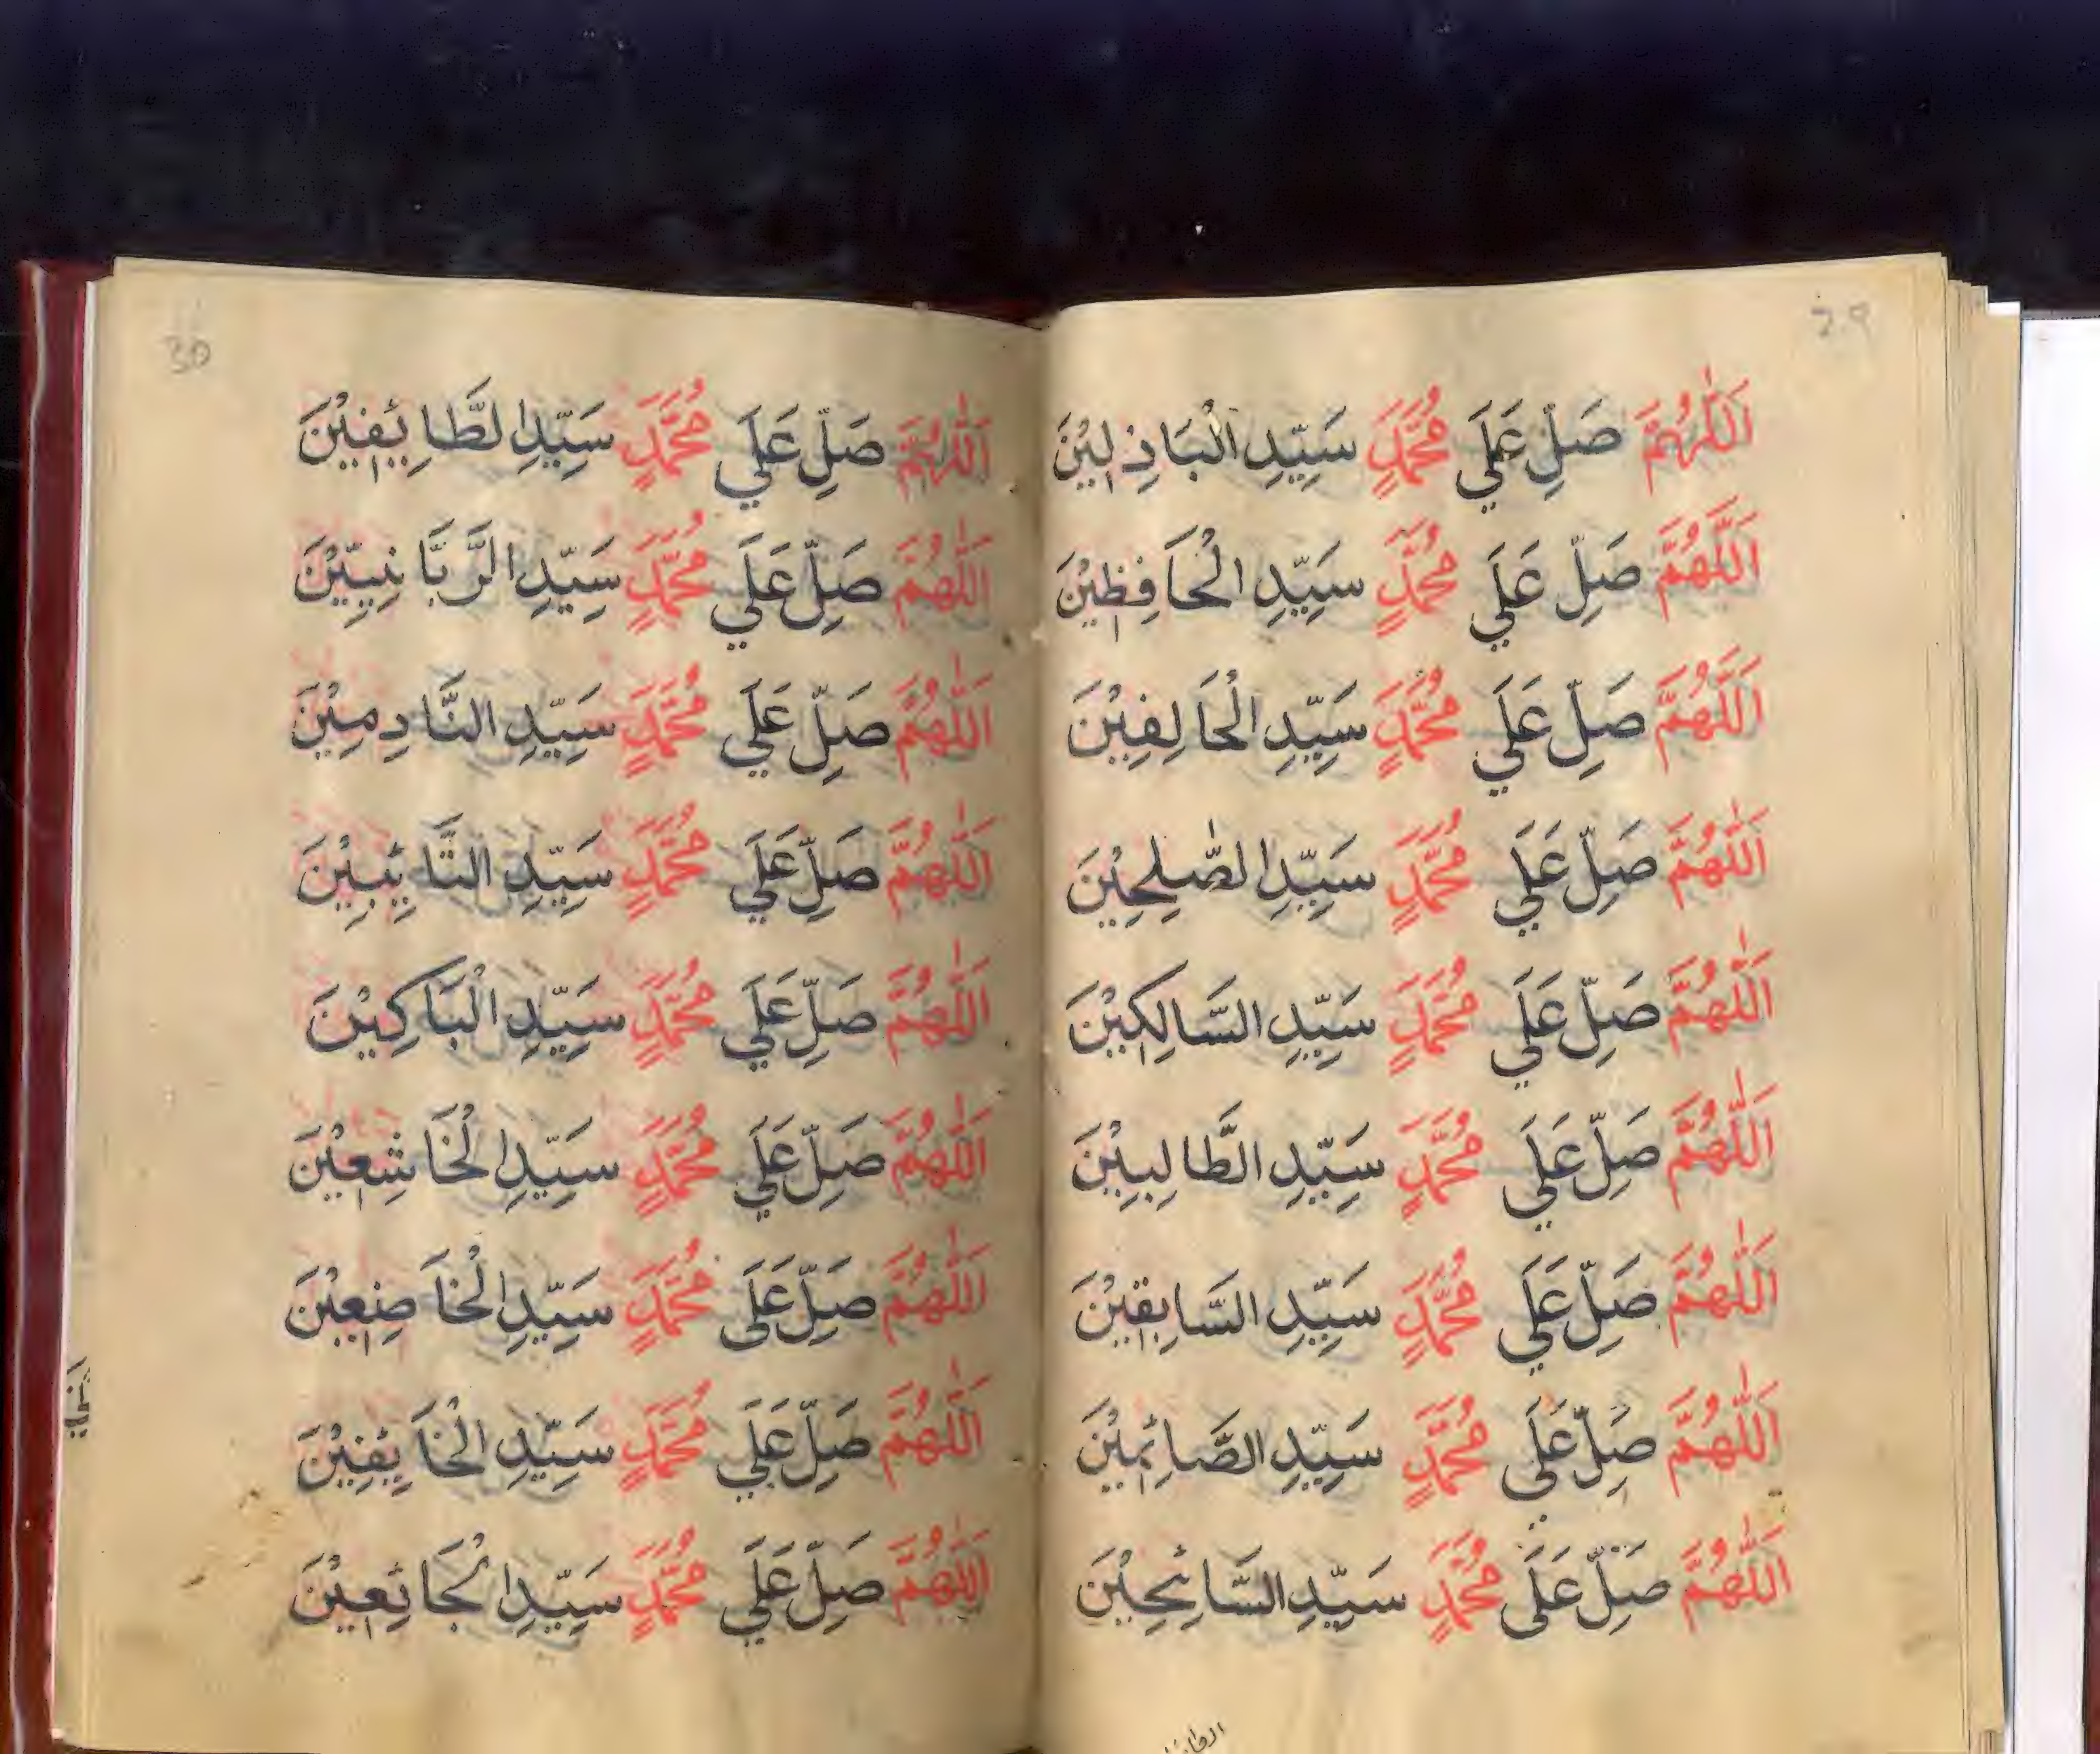 29
اَللّٰهُمَّ صَلِّ عَلَي مُحَمَّدٍ سَيِّدِ الْبَاذِلِيْنَ
اَللّٰهُمَّ صَلِّ عَلَي مُحَمَّدٍ سَيِّدِ الْحَافِظِيْنَ
اَللّٰهُمَّ صَلِّ عَلَي مُحَمَّدٍ سَيِّدِ الْحَالِفِيْنَ
اَللّٰهُمَّ صَلِّ عَلَي مُحَمَّدٍ سَيِّدِ الصّٰلِحِيْنَ
اَللّٰهُمَّ صَلِّ عَلَي مُحَمَّدٍ سَيِّدِ السَّالِكِيْنَ
اَللّٰهُمَّ صَلِّ عَلَي مُحَمَّدٍ سَيِّدِ الطَّالِبِيْنَ
اَللّٰهُمَّ صَلِّ عَلَي مُحَمَّدٍ سَيِّدِ السَّابِقِيْنَ
اَللّٰهُمَّ صَلِّ عَلَي مُحَمَّدٍ سَيِّدِ الصَّائِمِيْنَ
اَللّٰهُمَّ صَلِّ عَلَى مُحَمَّدٍ سَيِّدِ السَّائِحِيْنَ
30
اَللّٰهُمَّ صَلِّ عَلَي مُحَمَّدٍ سَيِّدِ الطَّائِفِيْنَ
اَللّٰهُمَّ صَلِّ عَلَي مُحَمَّدٍ سَيِّدِ الرَّبَّانِيِّيْنَ
اَللّٰهُمَّ صَلِّ عَلَي مُحَمَّدٍ سَيِّدِ النَّادِمِيْنَ
اَللّٰهُمَّ صَلِّ عَلَي مُحَمَّدٍ سَيِّدِ التَّائِبِيْنَ
اَللّٰهُمَّ صَلِّ عَلَي مُحَمَّدٍ سَيِّدِ الْبَاكِيْنَ
اَللّٰهُمَّ صَلِّ عَلَي مُحَمَّدٍ سَيِّدِ الْخَاشِعِيْنَ
اَللّٰهُمَّ صَلِّ عَلَى مُحَمَّدٍ سَيِّدِ الْخَاضِعِيْنَ
اَللّٰهُمَّ صَلِّ عَلَي مُحَمَّدٍ سَيِّدِ الْخَائِفِيْنَ
اَللّٰهُمَّ صَلِّ عَلَي مُحَمَّدٍ سَيِّدِ الْجَائِعِيْنَ